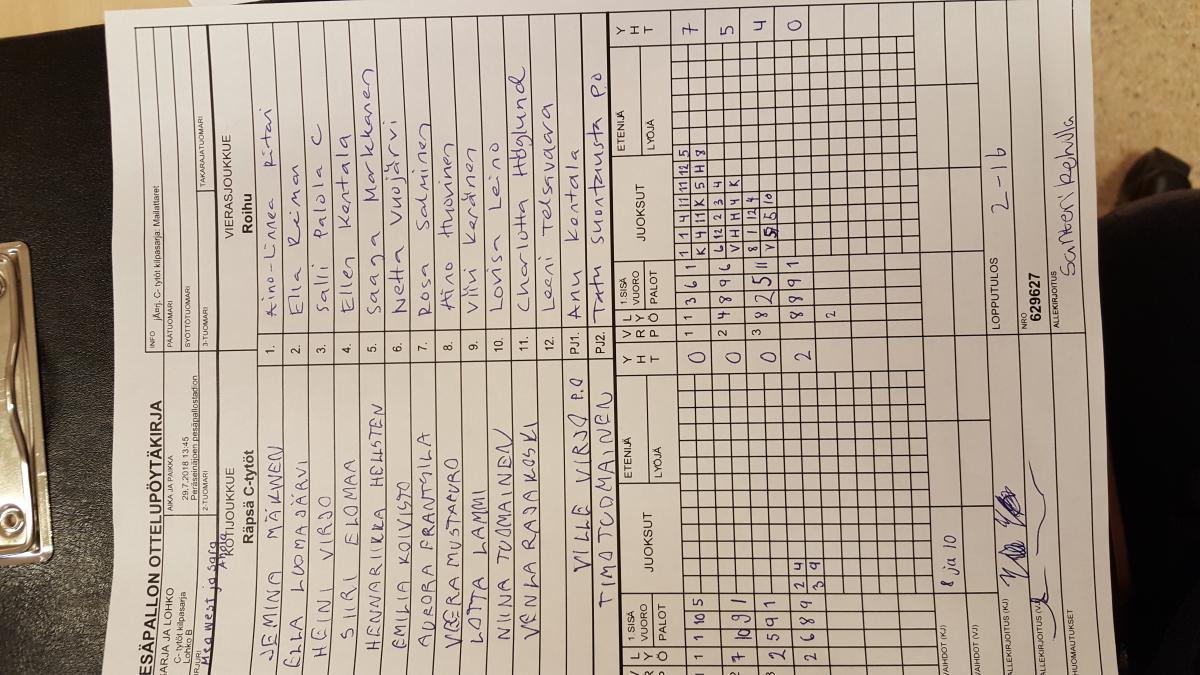 ESÄPALLON OTTELUPÖYTÄKIRJA
ARJA JA LOHKO
C- tytöt kilpasarja
Lohko B
AIKA JA PAIKKA
29.7.2018 13:45
Peräseinäjoen pesäpallostadion
INFO jÄrj. C- tytöt kilpasarja: Mailattaret
PÄÄTUOMARI
SYÖTTÖTUOMARI
2-TUOMARI
3-TUOMARI
TAKARAJATUOMARI
KOTIJOUKKUE
Räpsä C-tytöt
VIERASJOUKKUE
Roihu
JEMINA MÄKINEN 1. Aino-Linnea Ritari
ELLA LUOMAJÄRVI 2. Ella Reiman
HEINI VIRJO 3. Salli Palola C
SIIRI ELOMAA 4. Ellen Kentala
HENNARIIKKA HELLSTEN 5. Saaga Markkanen
EMILIA KOIVISTO 6. Netta Vuojärvi
AURORA FRANTSILA 7. Rosa Salminen
VEERA MUSTAPURO 8. Aino Huovinen
LOTTA LAMMI 9. Viivi Keränen
NIINA TUOMAINEN 10. Lovisa Leino
VENLA RAJAKOSKI 11. Charlotta Höglund
12. Leeni Telsavaara
VILLE VIRJO P.O PJ1. Anu Kentala
TIMO TUOMAINEN PJ2. Tatu Suontausta P.O
1.SISÄ VUORO PALOT JUOKSUT ETENIJÄ LYÖJÄ YHT
1.SISÄ VUORO PALOT JUOKSUT ETENIJÄ LYÖJÄ YHT
1 1 10 5 0 1 1 3 6 1 1 1 4 11 11 12 5 7
K 4 11 K 5 H 8
7 10 9 1 0 2 4 8 9 6 6 12 2 3 4 5
V H H 4 K
2 5 9 1 0 3 8 2 5 11 8 1 12 4 4
2 6 8 9 2 4 2 8 8 9 1 0
3 9
2
VAIHDOT (KJ) 8 ja 10
VAIHDOT (VJ)
LOPPUTULOS 2-16
ALLEKIRJOITUS (KJ)
NRO
629627
ALLEKIRJOITUS (VJ)
ALLEKIRJOITUS
Santeri Kehilla
HUOMAUTUKSET